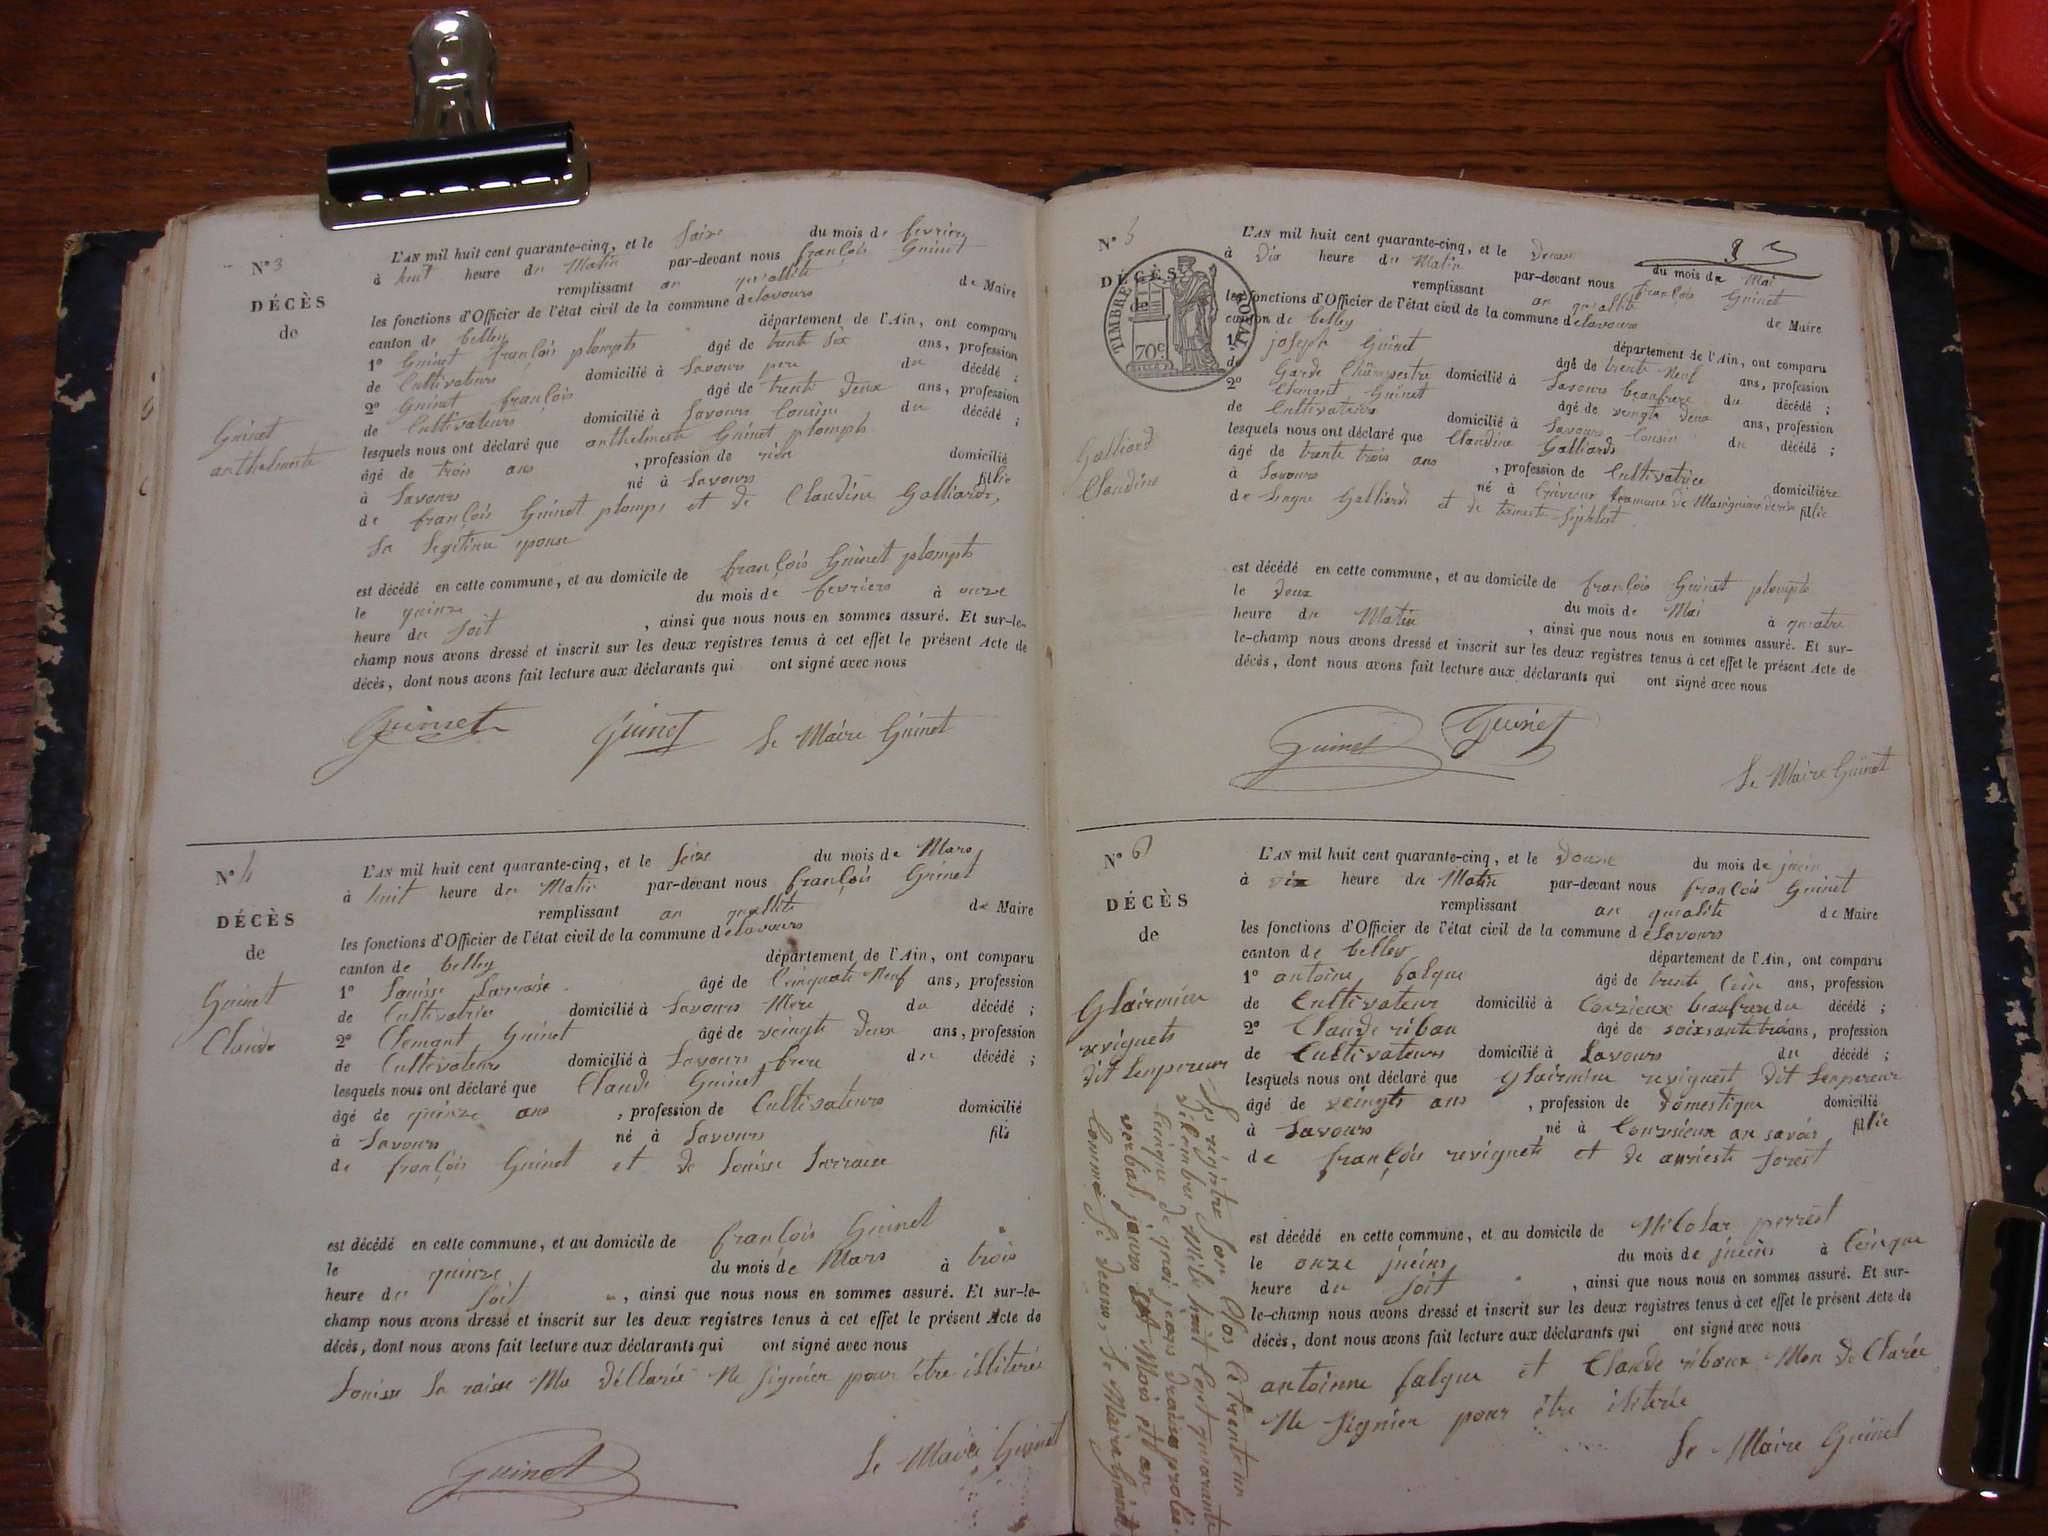 N° 3
DÉCÈS
de
Guinet
anthelmette
L'AN mil huit cent quarante-cinq, et le saize du mois de fevriers
à huit heure du Matin par-devant nous françois Guinet
remplissant an quallité de Maire
les fonctions d'Officier de l'état civil de la commune de lavours
canton de belley département de l'Ain, ont comparu
1° Guinet françois plompts âgé de trente six ans, profession
de Cultivateurs domicilié à Lavours pere du décédé ;
2° Guinet françois âgé de trente deux ans, profession
de Cultivateurs domicilié à Lavours Cousin du décédé ;
lesquels nous ont déclaré que anthelmette Guinet plompts
âgé de trois ans , profession de rien domicilié
à Lavours né à Lavours fillie
de françois Guinet plomps et de Claudine Galliards,
Sa legitime epouse
est décédé en cette commune, et au domicile de françois Guinet plompts
le quinze du mois de fevriers à onze
heure du soit , ainsi que nous nous en sommes assuré. Et sur-le-
champ nous avons dressé et inscrit sur les deux registres tenus à cet effet le présent Acte de
décès, dont nous avons fait lecture aux déclarants qui ont signé avec nous
Guinet Guinet Le Maire Guinet
N° 4
DÉCÈS
de
Guinet
Claude
L'AN mil huit cent quarante-cinq, et le seize du mois de Mars
à huit heure du Matin par-devant nous françois Guinet
remplissant an quallité de Maire
les fonctions d'Officier de l'état civil de la commune de lavours
canton de belley département de l'Ain, ont comparu
1° Louisse Larraise âgé de Cinquate Neuf ans, profession
de Cultivatrice domicilié à Lavours Mere du décédé ;
2° Clemant Guinet âgé de veingte deux ans, profession
de Cultivateurs domicilié à Lavours frere du décédé ;
lesquels nous ont déclaré que Claude Guinet
âgé de quinze ans , profession de Cultivateurs domicilié
à Lavours né à Lavours fils
de françois Guinet et de Louisse Larraise
est décédé en cette commune, et au domicile de françois Guinet
le quinze du mois de Mars à trois
heure du soit , ainsi que nous nous en sommes assuré. Et sur-le-
champ nous avons dressé et inscrit sur les deux registres tenus à cet effet le présent Acte de
décès, dont nous avons fait lecture aux déclarants qui ont signé avec nous
Louisse La raisse Ma déllarée Ne signiér pour être illiterée
Guinet Le Maire Guinet
N° 5
DÉCÈS
de
TIMBRE ROYAL
70c
Galliard
Claudine
L'AN mil huit cent quarante-cinq, et le deuxe du mois de Mai
à dix heure du Matin par-devant nous françois Guinet
remplissant an quallité de Maire
les fonctions d'Officier de l'état civil de la commune de lavours
canton de belley département de l'Ain, ont comparu
1° joseph Guinet âgé de trente Neuf ans, profession
de Garde Champestre domicilié à Lavours beaufrere du décédé ;
2° Clemant Guinet âgé de veingte deux ans, profession
de Cultivateurs domicilié à Lavours Cousin du décédé ;
lesquels nous ont déclaré que Claudine Galliards
âgé de trente trois ans , profession de Cultivatrice domicilière
à Lavours né à Commune de fillie
de Galliard et de
est décédé en cette commune, et au domicile de françois Guinet plompts
le deux du mois de Mai à quatre
heure du Matin , ainsi que nous nous en sommes assuré. Et sur-
le-champ nous avons dressé et inscrit sur les deux registres tenus à cet effet le présent Acte de
décès, dont nous avons fait lecture aux déclarants qui ont signé avec nous
Guinet Guinet
Le Maire Guinet
N° 6
DÉCÈS
de
Glairmine
reviguets
dit Lenpereur
L'AN mil huit cent quarante-cinq, et le douze du mois de juein
à six heure du Matin par-devant nous françois Guinet
remplissant an qualité de Maire
les fonctions d'Officier de l'état civil de la commune de Lavours
canton de belley département de l'Ain, ont comparu
1° antoine falque âgé de trente Cein ans, profession
de Cultivateur domicilié à Conzieux beaufrere du décédé ;
2° Claude ribou âgé de soixsante trois ans, profession
de Cultivateurs domicilié à Lavours du décédé ;
lesquels nous ont déclaré que Glairmine reviguest dit Lenpereur
âgé de veingts ans , profession de domestique domicilié
à Lavours né à Conzsieux an savoir fillie
de françois reviguets et de anrieste forest
est décédé en cette commune, et au domicile de Nicolas perrest
le onze jueins du mois de jueins à Ceinque
heure du soit , ainsi que nous nous en sommes assuré. Et sur-
le-champ nous avons dressé et inscrit sur les deux registres tenus à cet effet le présent Acte de
décès, dont nous avons fait lecture aux déclarants qui ont signé avec nous
antoinne falque et Claude riboux Mon de Clarée
Ne signiér pour être iliterée
Le Maire Guinet
Les régistre son Clos le trente un
décembre Mile huit Cent quarante
Ceinque de quoi jeans draisse prosès-
verbal jours et Mois et an
Comme Si desus, Le Maire Guinet